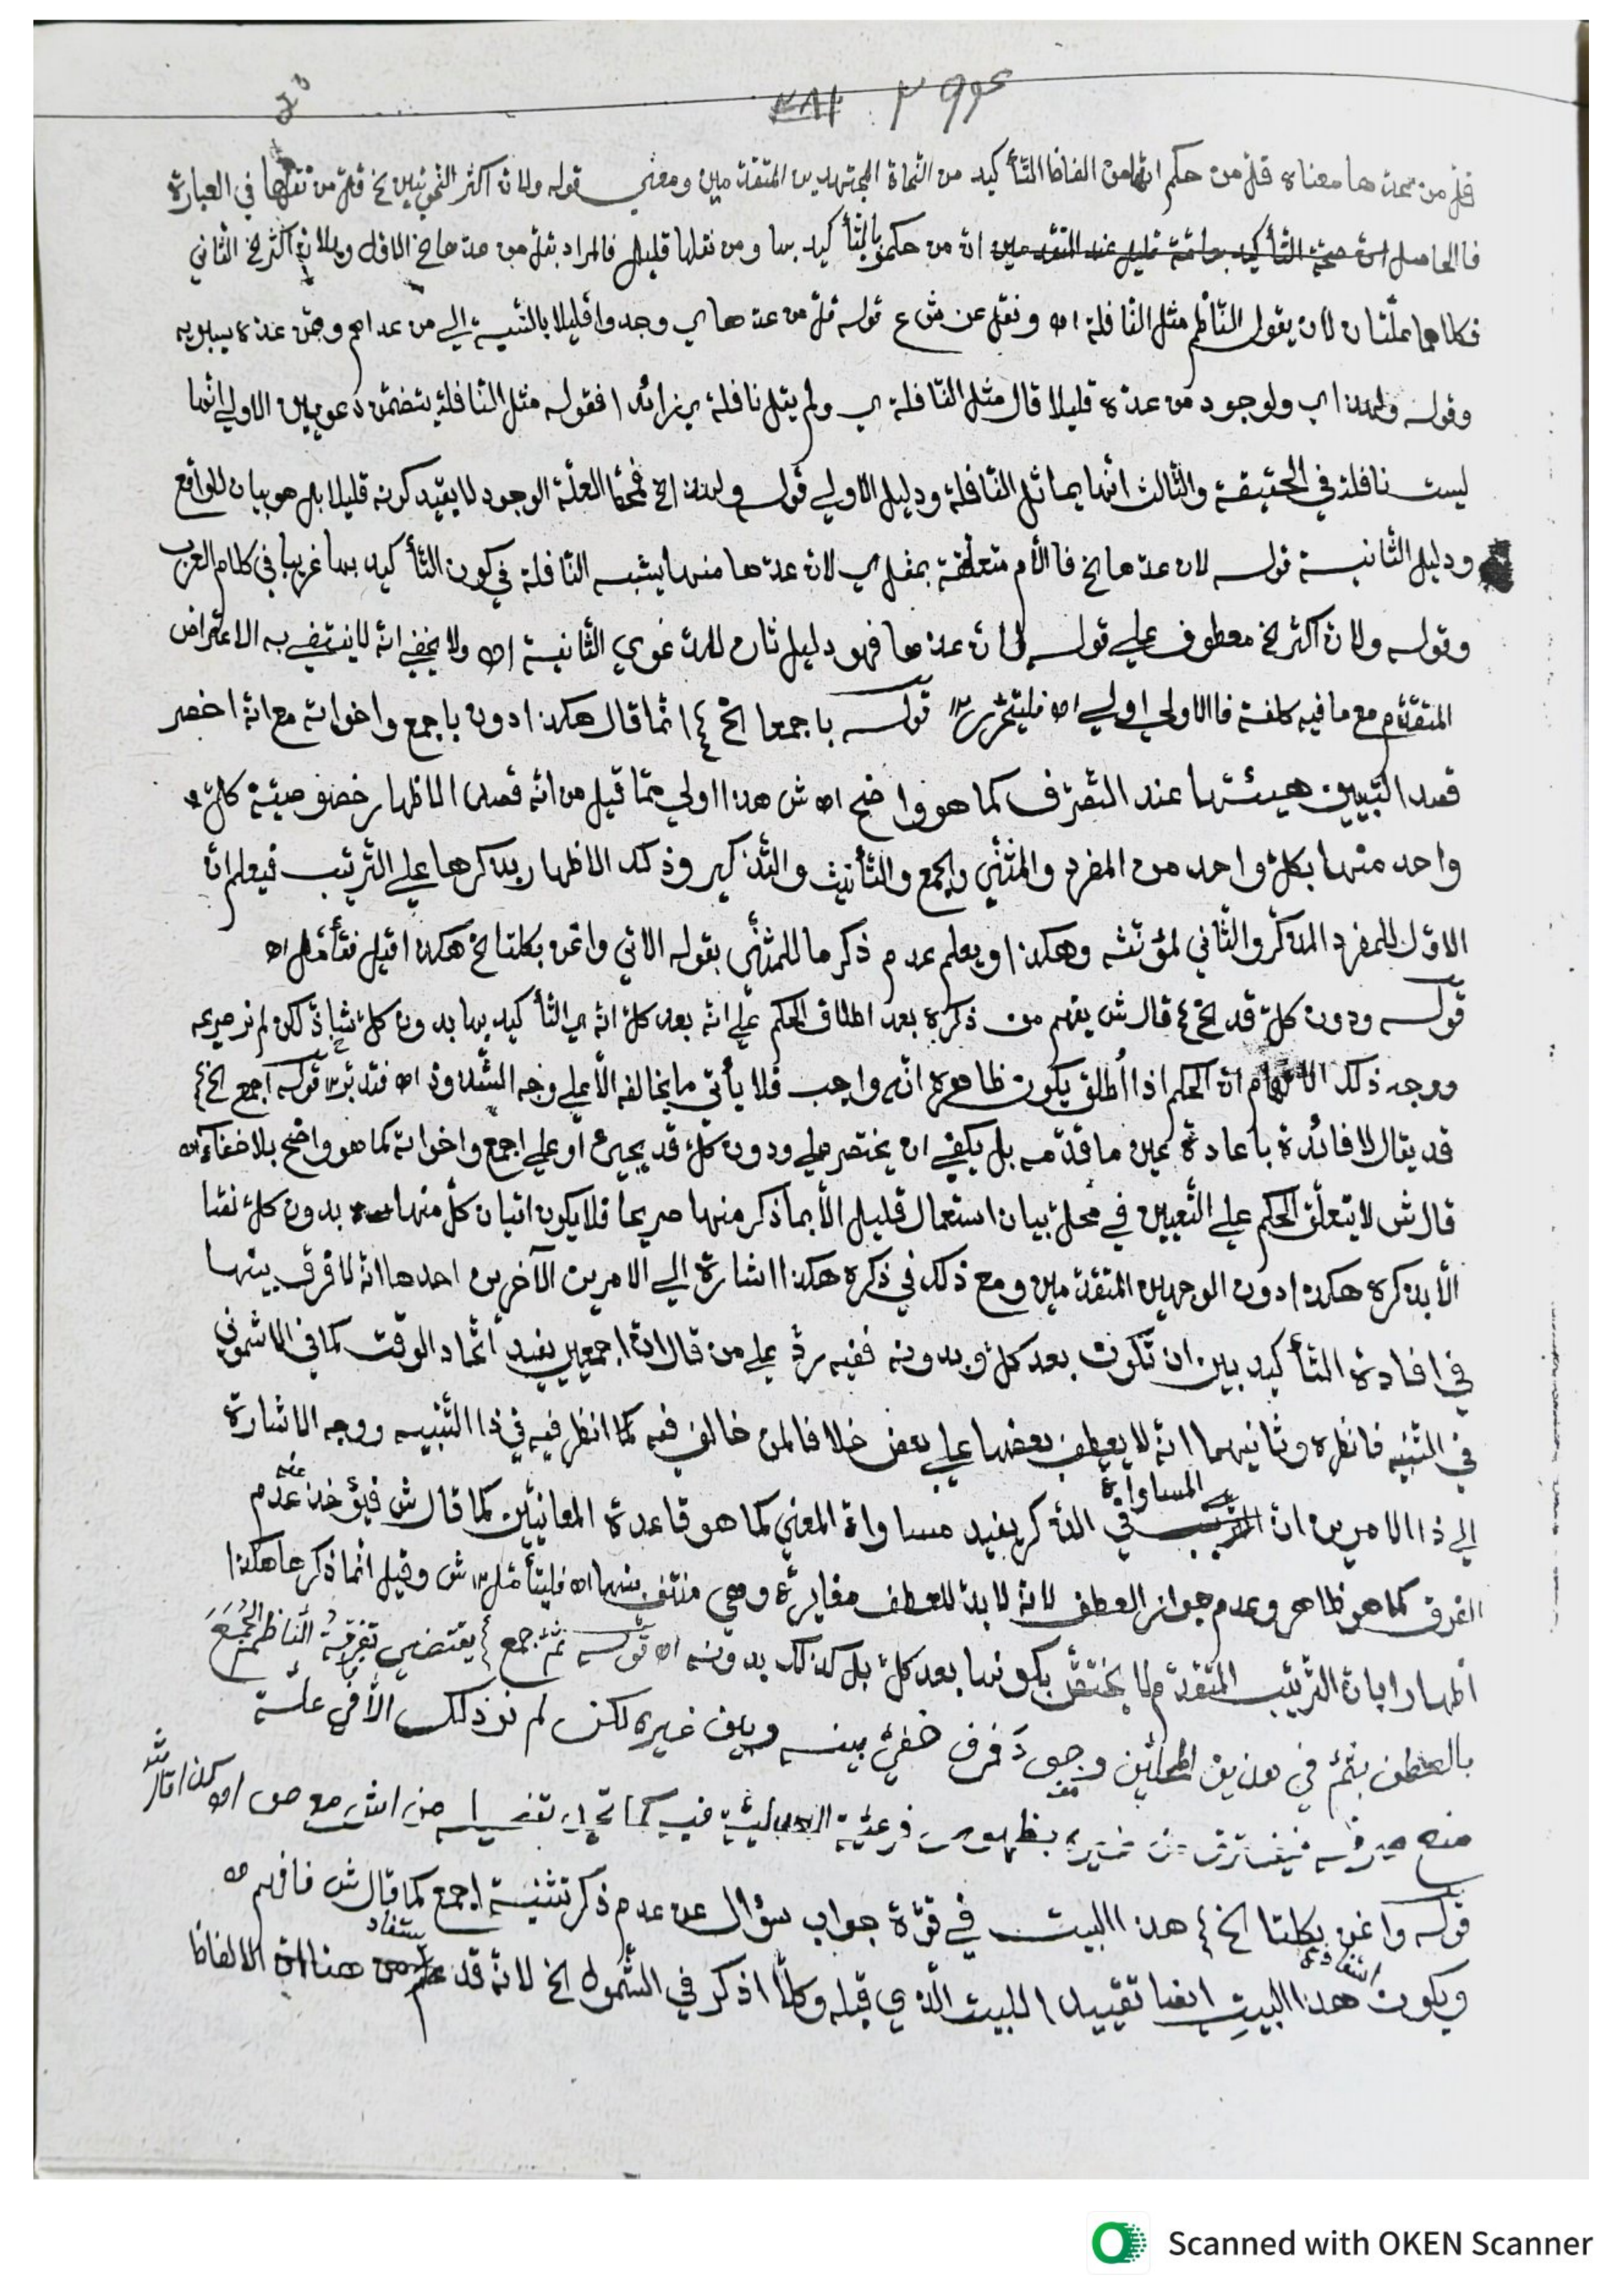 ٣٩٤
فلمن عدها معناه قل من حكم انها من الفاظ التأكيد من النحاة المجتهدين المتقدمين ومعنى قوله ولان اكثر النحويين الخ قل من نقلها في العبارة
فالحاصل ان صحة التأكيد بعامة قليل عند المتقدمين ان من حكموا بالتأكيد بها ومن نقلها قليل فالمراد بقل من عدها الخ الاول ولان اكثر الخ الثاني
فكلاهما علتان لان يقول الناظم مثل النافلة اه ونقل عن ش ع قوله قل من عدها اي وجدوا قليلا بالنسبة الى من عداهم وممن عده سيبويه
وقوله ولهذا اي ولوجود من عده قليلا قال مثل النافلة اي ولم يقل نافلة اي زائدا فقوله مثل النافلة يتضمن دعويين الاولى انها
ليست نافلة في الحقيقة والثالث انها يماثل النافلة ودليل الاولى قوله ولهذا الخ فمحط العلة الوجود لا بقيد كونه قليلا بل هو بيان للواقع
ودليل الثانية قوله لان عدها الخ فاللام متعلقة بمثل اي لان عدها منها يشبه النافلة في كون التأكيد بها غريبا في كلام العرب
وقوله ولان اكثر الخ معطوف على قوله لان عدها فهو دليل ثان للدعوى الثانية اه ولا يخفى انه لا ينتفي به الاعتراض
المتقدم مع ما فيه كلفة فالاولى اولى اه فليتحرر ١٢ قوله باجمعا الخ انما قال هكذا دون باجمع واخواته مع انه اخصر
قصدا لتبيين هيئتها عند التصرف كما هو واضح اه ش هذا اولى مما قيل من انه قصد الاظهار خصوصية كل
واحد منها بكل واحد من المفرد والمثنى والجمع والتأنيث والتذكير وذلك الاظهار بذكرها على الترتيب فيعلم ان
الاول للمفرد المذكر والثاني لمؤنثه وهكذا ويعلم عدم ذكر ما للمثنى بقوله الاتي واغن بكلتا الخ هكذا قيل فتأمل اه
قوله ودون كل قد الخ قال ش يفهم من ذكره بعد اطلاق الحكم على انه بعد كل انه اي التأكيد بها بدون كل شاذ لكن لم نر صريحه
ووجه ذلك الافهام ان الحكم اذا اطلق يكون ظاهره انه واجب فلا يأتي ما يخالفه الا على وجه الشذوذ اه فتدبر ١٢ قوله اجمع الخ
قد يقال لا فائدة باعادة عين ما قدمه بل يكفي ان يختصر على ودون كل قد يجيء او على اجمع واخواته كما هو واضح بلا خفاء اه
قال ش لا يتعلق الحكم على التعيين في محل بيان استعمال قليل الا بما ذكر منها صريحا فلا يكون اتيان كل منها بدون كل نصا
الا بذكره هكذا دون الوجهين المتقدمين ومع ذلك في ذكره هكذا اشارة الى الامرين الآخرين احدها انه لا فرق بينها
في افادة التأكيد بين ان تكون بعد كل وبدونه ففيه رد على من قال ان اجمعين يفيد اتحاد الوقت كما في الاشموني
في التنبيه فانظره وثانيهما انه لا يعطف بعضها على بعض خلافا لمن خالف فيه كما انظر فيه في ذا التنبيه ووجه الاشارة
الى ذا الامرين ان المساواة في الذكر يفيد مساواة المعنى كما هو قاعدة المعانيين كما قال ش فيؤخذ عنه عدم
الفرق كما هو ظاهر وعدم جواز العطف لانه لا بد للعطف مغايرة وهي منتف بينها اه فليتأمل ١٢ ش وقيل انما ذكرها هكذا
اظهارا بان الترتيب المتقدم لا يختص بكونها بعد كل بل كذلك بدونه اه قوله ثم جمع يقتضي تفرقة الناظم الجمع
بالعطف بثم في هذين المحلين وجود فرق خفي بينه وبين غيره لكن لم نر ذلك الا في علة
منع صرفه
قوله واغن بكلتا الخ هذا البيت في قوة جواب سؤال عن عدم ذكر تثنية اجمع كما قال ش فافهم اه
ويكون هذا البيت ايضا تقييدا للبيت الذي قبله وكلا اذكر في الشمول الخ لانه قد يستفاد من هنا ان الالفاظ
Scanned with OKEN Scanner